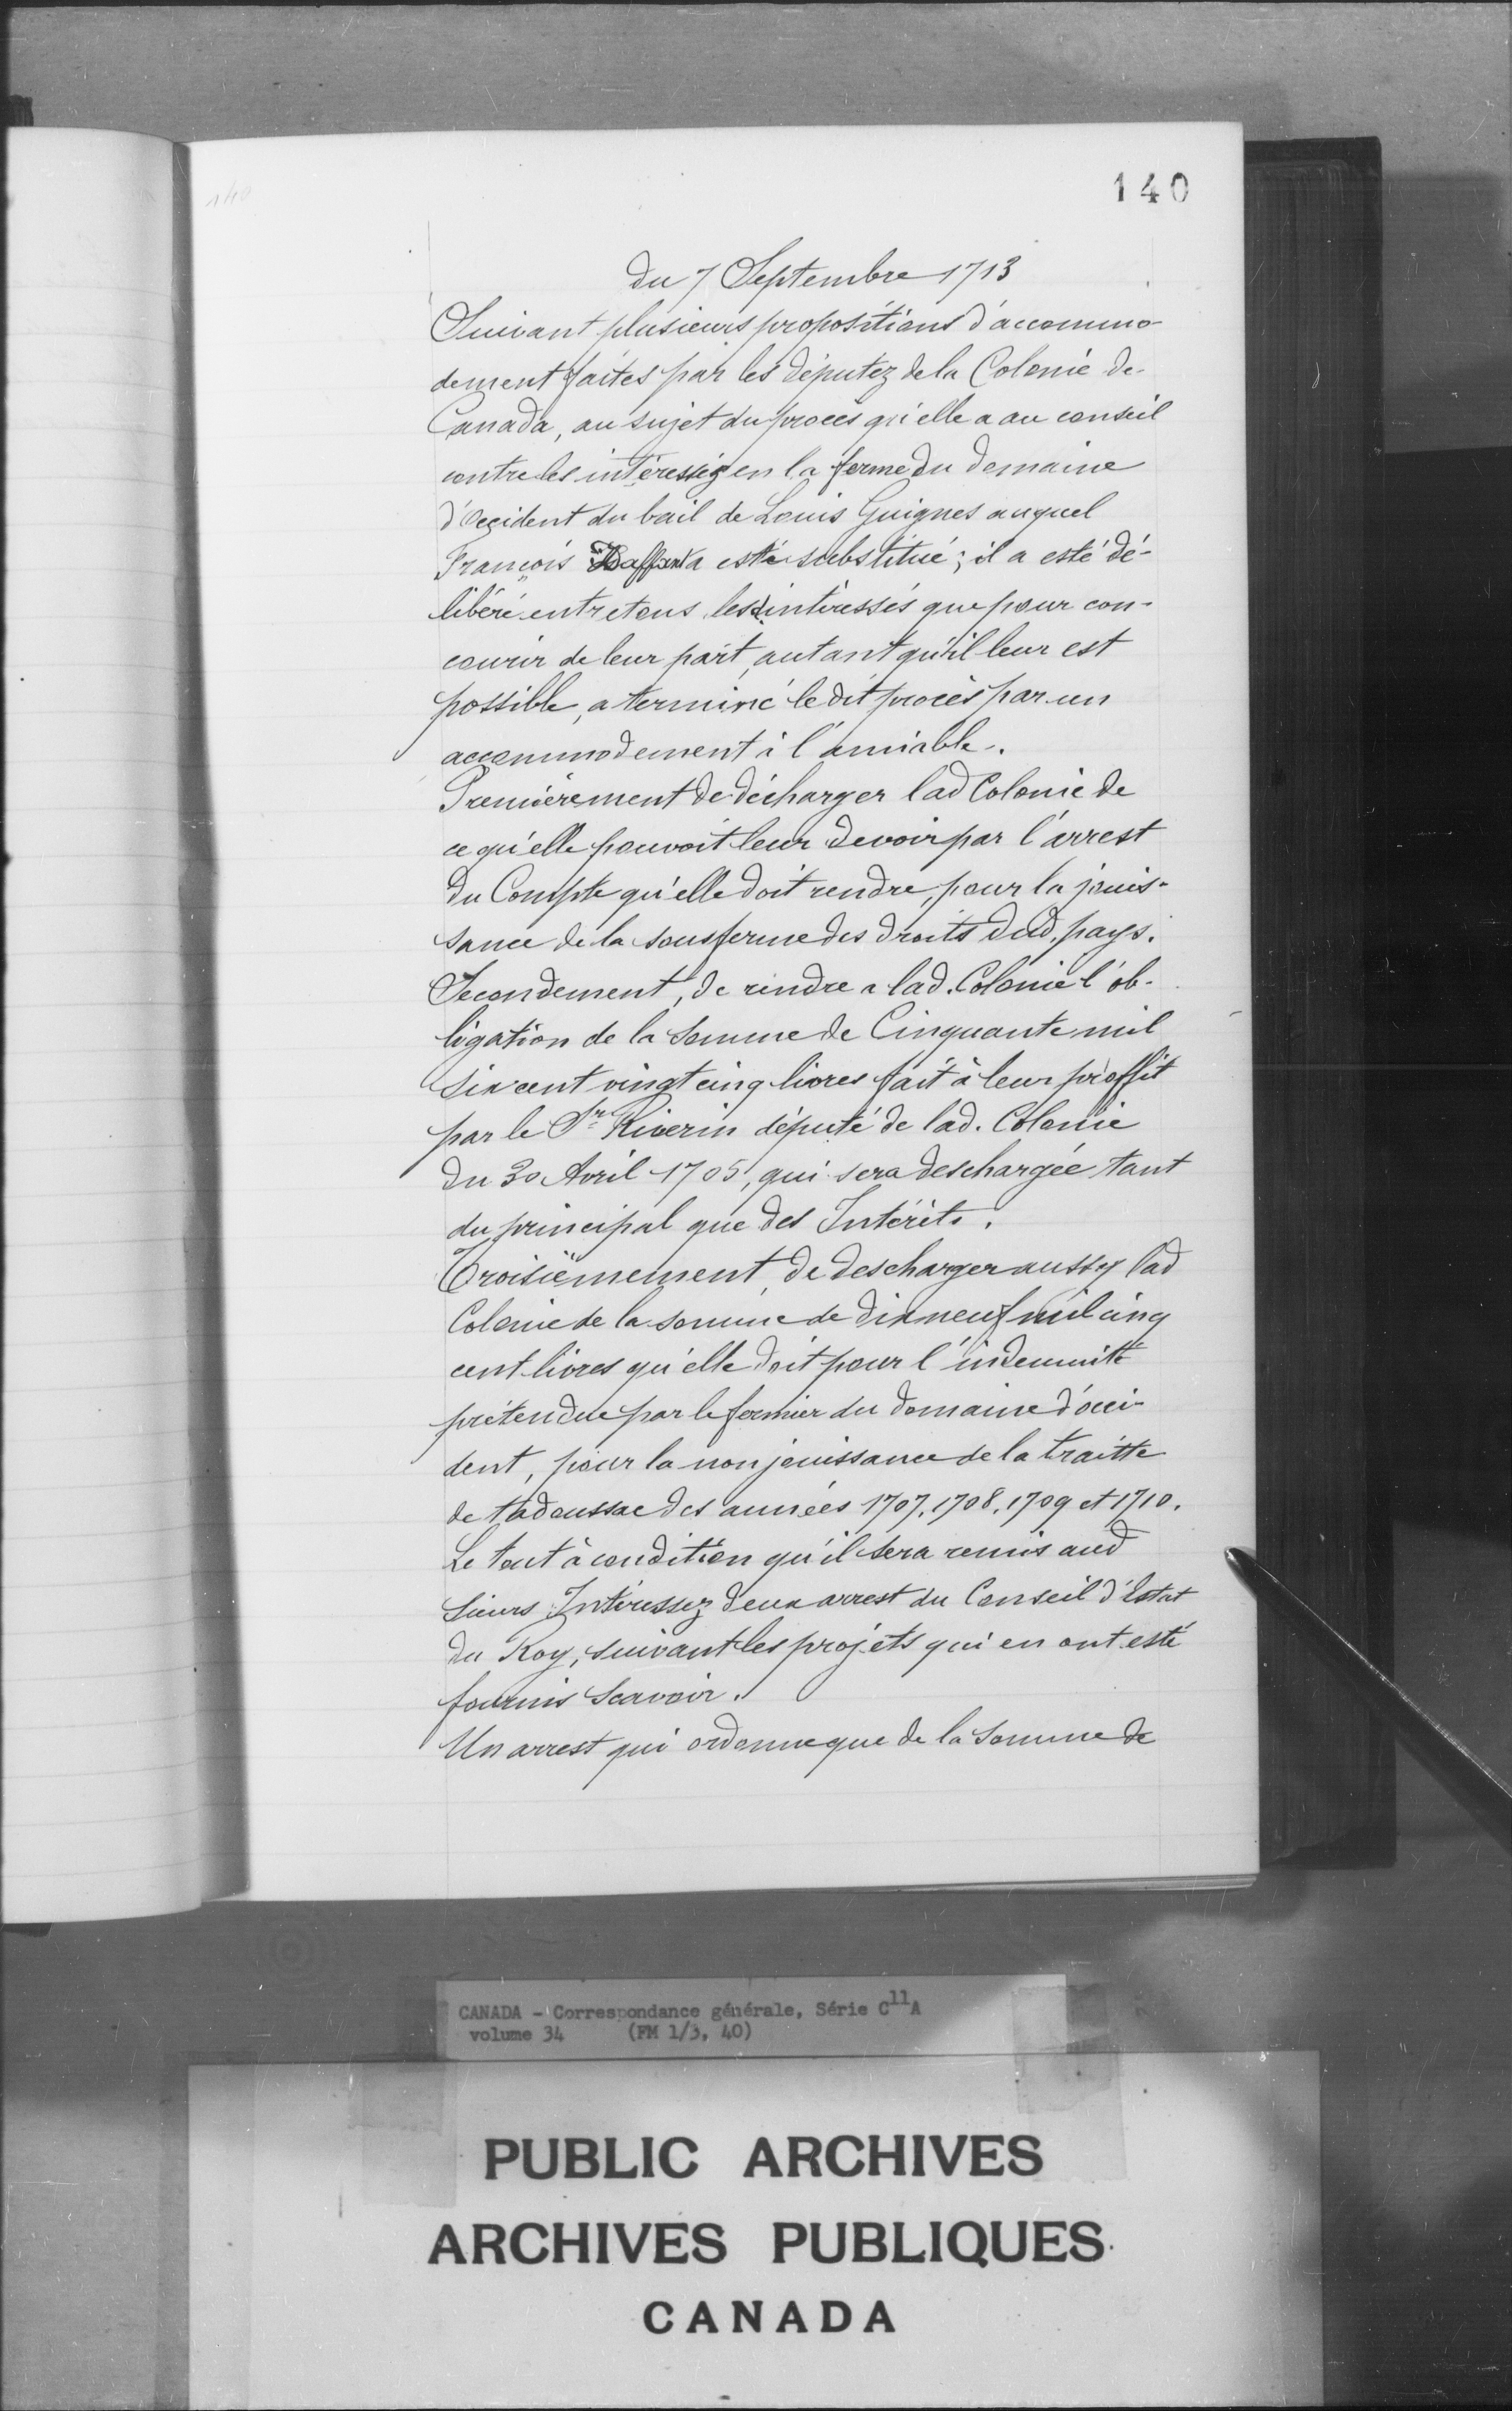 140
du 7 Septembre 1713
Suivant plusieurs propositions d'accommo-
dement faites par les députez de la Colonie de
Canada, au sujet du procès qu'elle a au conseil
contre les intéressez en la ferme du Domaine
d'Occident du bail de Louis Guignes auquel
François a esté substitué; il a esté dé-
libéré entre tous les d. intéressés que pour con-
courir de leur part, autant qu'il leur est
possible, a terminé le dit procès par un
accommodement à l'amiable.
Premièrement de décharger lad Colonie de
ce qu'elle pouvoit leur devoir par l'arrest
du Compte qu'elle doit rendre, pour la jouis-
sance de la sousferme des droits dud. pays.
Secondement, de rendre a lad. Colonie l'ob-
ligation de la somme de Cinquante mil
six cent vingt cinq livres fait à leur proffit
par le Sr. Riverin député de lad. Colonie
du 30 Avril 1705, qui sera deschargée tant
du principal que des Intérêts.
Troisièmement, de descharger aussy lad
Colonie de la somme de dix neuf mil cinq
cent livres qu'elle doit pour l'indemnité
prétendue par le fermier du domaine d'occi-
dent, pour la non jouissance de la traitte
de tadoussac des années 1707, 1708, 1709 et 1710.
Le tout à condition qu'il sera remis aud
sieurs Intéressez deux arrest du Conseil d'Estat
du Roy, suivant les projets qui en ont esté
fournis scavoir.
Un arrest qui ordonne que de la somme de
CANADA - Correspondance générale, Série C11A
volume 34 (FM 1/3, 40)
PUBLIC ARCHIVES
ARCHIVES PUBLIQUES
CANADA